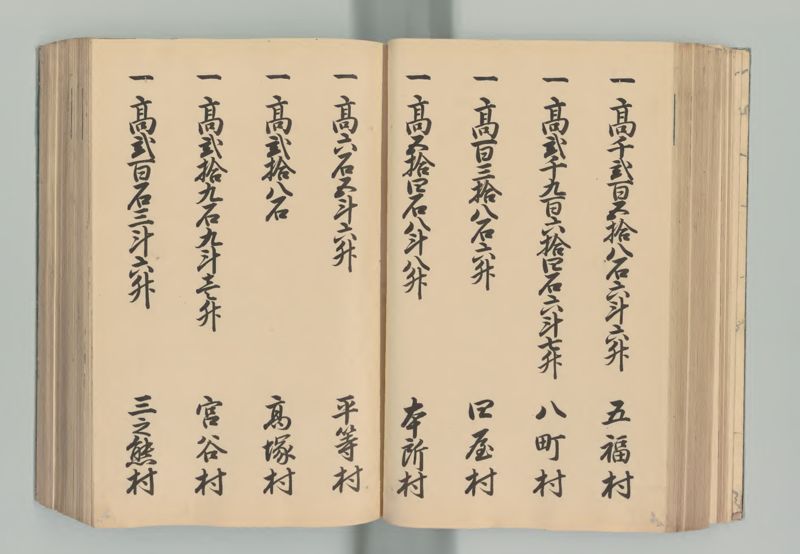 一 高千弐百五拾八石六斗六升 五福村
一 高弐千九百六拾四石六斗七升 八町村
一 高百三拾八石六升 口屋村
一 高五拾四石八斗八升 本所村
一 高六石五斗六升 平等村
一 高弐拾八石 高塚村
一 高弐拾九石九斗壱升 宮谷村
一 高弐百石三斗六升 三之熊村